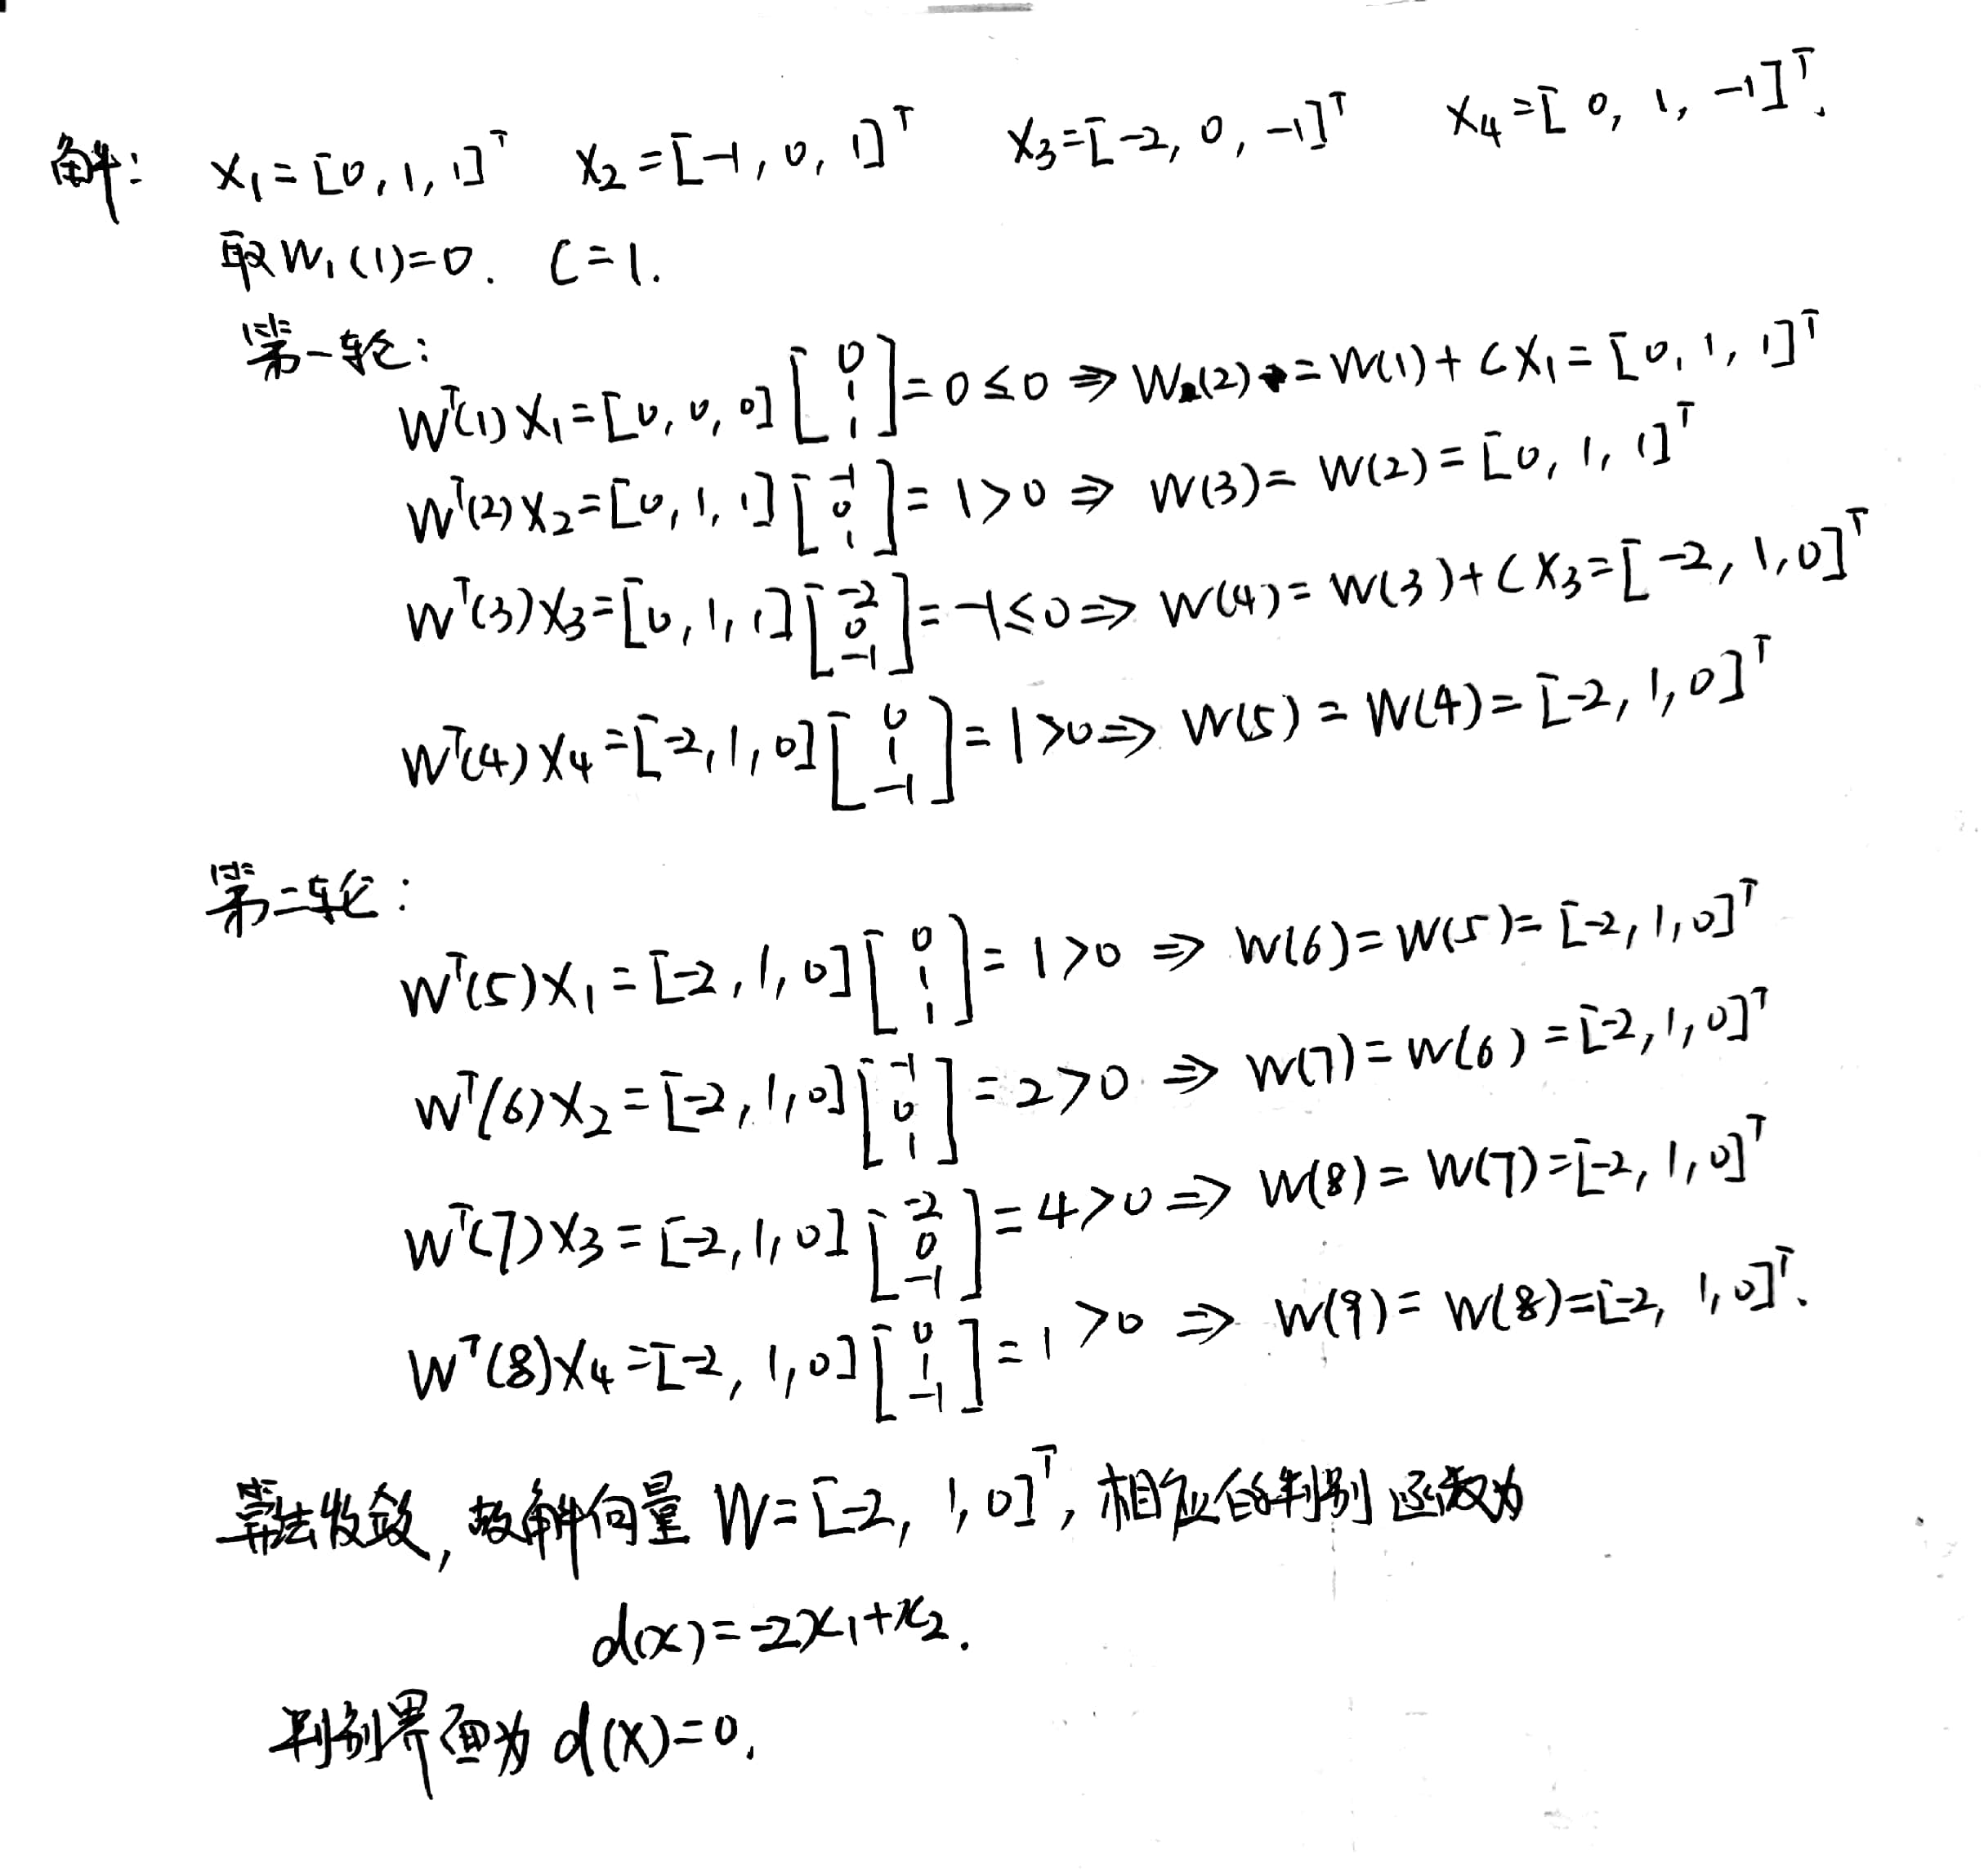 解: X₁=[0,1,1]ᵀ X₂=[-1,0,1]ᵀ X₃=[-2,0,-1]ᵀ X₄=[0,1,-1]ᵀ.
取W₁(1)=0. C=1.
第一轮:
Wᵀ(1)X₁=[0,0,0][0 1 1]=0≤0⇒W(2)=W(1)+CX₁=[0,1,1]ᵀ
Wᵀ(2)X₂=[0,1,1][-1 0 1]=1>0⇒W(3)=W(2)=[0,1,1]ᵀ
Wᵀ(3)X₃=[0,1,1][-2 0 -1]=-1≤0⇒W(4)=W(3)+CX₃=[-2,1,0]ᵀ
Wᵀ(4)X₄=[-2,1,0][0 1 -1]=1>0⇒W(5)=W(4)=[-2,1,0]ᵀ
第二轮:
Wᵀ(5)X₁=[-2,1,0][0 1 1]=1>0⇒W(6)=W(5)=[-2,1,0]ᵀ
Wᵀ(6)X₂=[-2,1,0][-1 0 1]=2>0⇒W(7)=W(6)=[-2,1,0]ᵀ
Wᵀ(7)X₃=[-2,1,0][-2 0 -1]=4>0⇒W(8)=W(7)=[-2,1,0]ᵀ
Wᵀ(8)X₄=[-2,1,0][0 1 -1]=1>0⇒W(9)=W(8)=[-2,1,0]ᵀ.
算法收敛,故解向量W=[-2,1,0]ᵀ,相应的判别函数为
d(x)=-2x₁+x₂.
判别界面为d(X)=0.